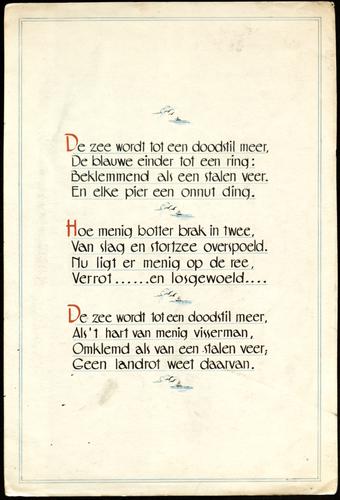 De zee wordt tot een doodstil meer,
De blauwe einder tot een ring:
Beklemmend als een stalen veer.
En elke pier een onnut ding.
Hoe menig botter brak in twee,
Van slag en stortzee overspoeld.
Nu ligt er menig op de ree,
Verrot......en losgewoeld....
De zee wordt tot een doodstil meer,
Als't hart van menig visserman,
Omklemd als van een stalen veer;
Geen landrot weet daarvan.